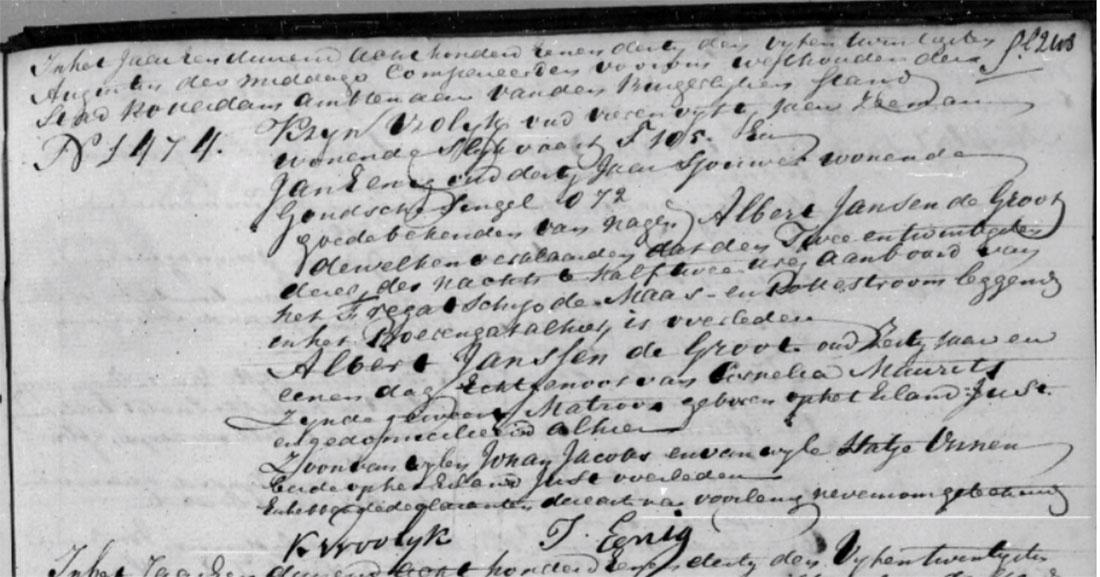 In het Jaar Een duizend acht honderd Eenen dertig den Vyfen twintigsten
Augustus des middags Compareerden voor ons wethouder der
Stad Rotterdam ambtenaar van den Burgerlyken Stand
Nº 1474. Kryn Vrolyk oud vieren vyftig Jaar Zeeman
wonende Slykvaart F 105. En
Jan Eenig oud dertig Jaar Sjouwer wonende
Goudsche Singel O 72
goede bekenden van nagen Albert Jansen de Groot
dewelken verklaarden dat den Twee en twintigsten
dezer des nachts te half twee ure aan boord van
het Fregat Schip de Maas- en Rottestroom leggende
in het Boerengat alhier is overleden
Albert Janssen de Groot oud Zestig Jaar en
eenen dag Echtgenoot van Cornelia Maurits
Zynde geweest Matroos geboren op het Eiland Just
en gedomicilieerd alhier
Zoon van wylen Johan Jacobs en van wyle Statje
beide op het Eiland Just overleden
En hebben de declaranten deze acte na voorlezing nevens ons geteekend
K Vroolyk J. Eenig
In het Jaar Een duizend acht honderd Eenen dertig den Vyfen twintigsten